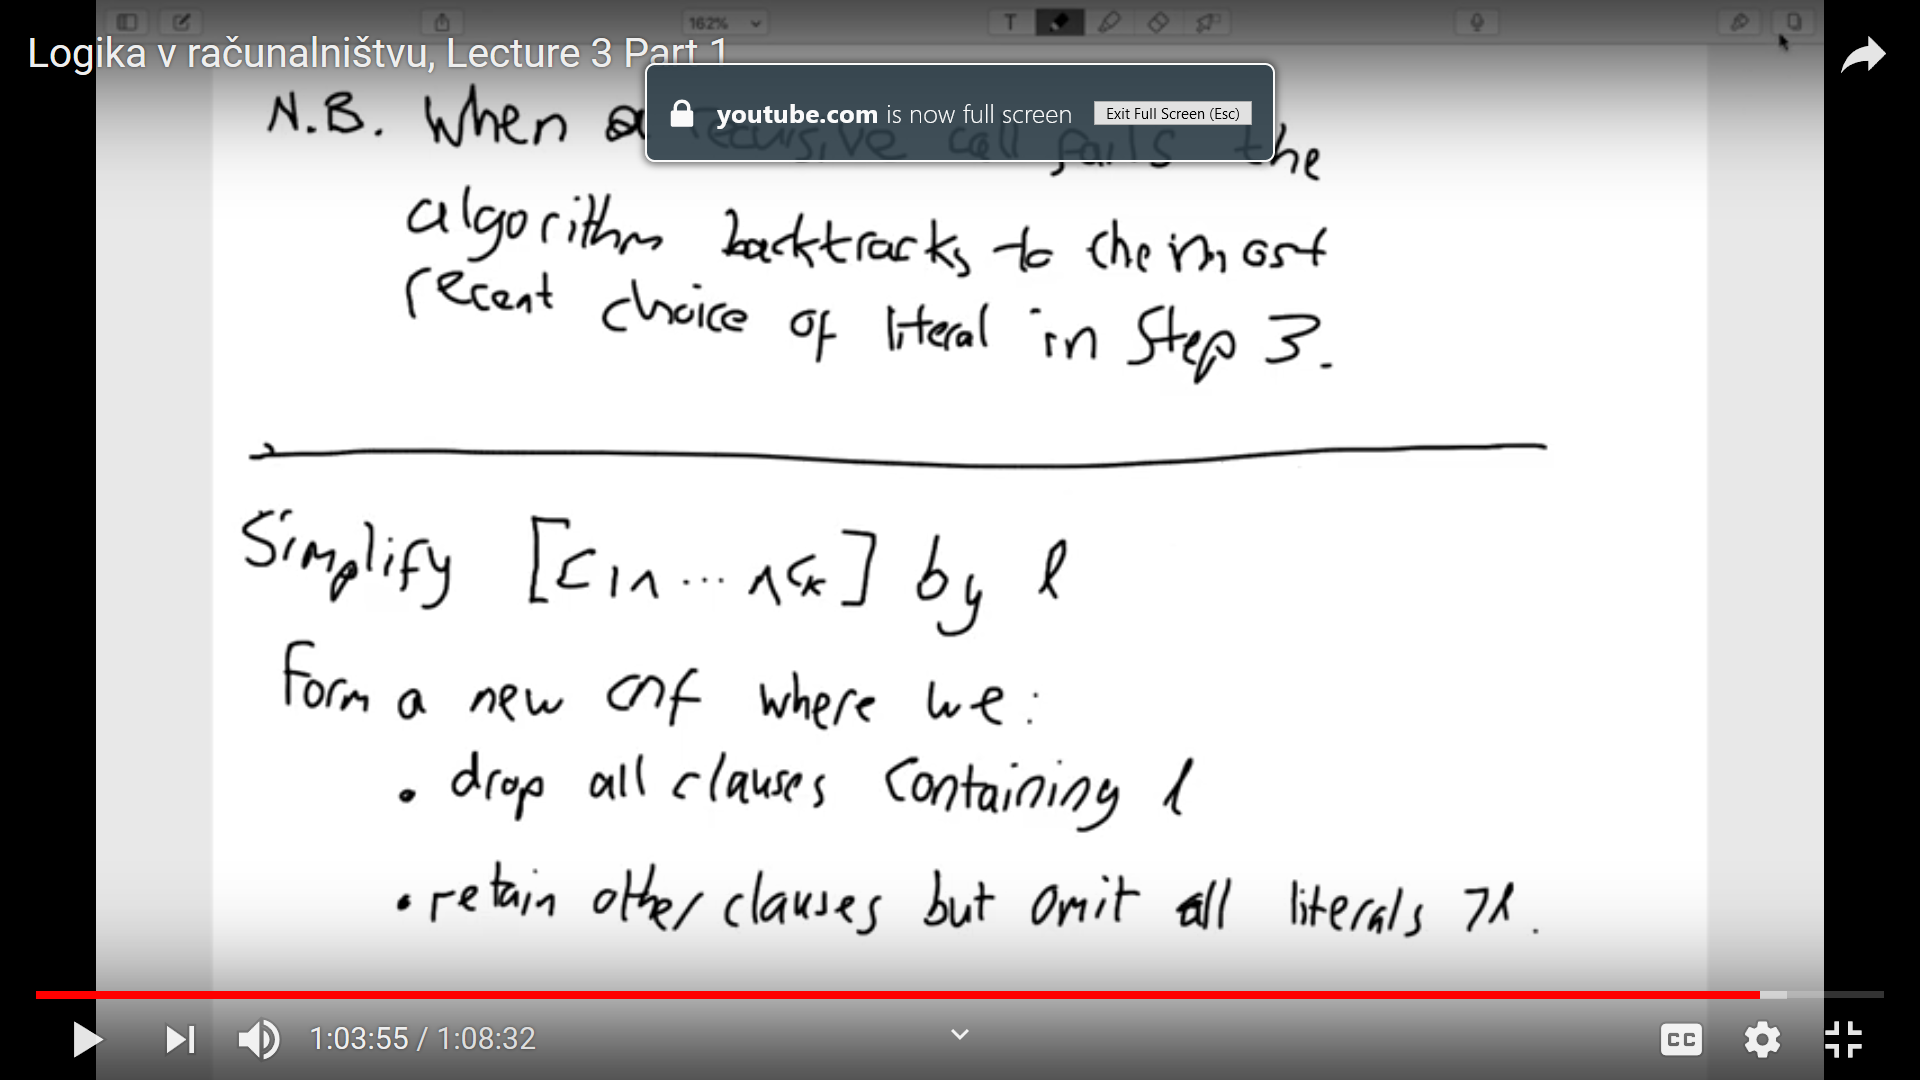 162%
T
Logika v računalništvu, Lecture 3 Part 1
youtube.com is now full screen
Exit Full Screen (Esc)
N.B. When a recursive call fails the
algorithm backtracks to the most
recent choice of literal in Step 3.
Simplify [C1 ∧ ... ∧ Ck] by l
Form a new cnf where we:
• drop all clauses containing l
• retain other clauses but omit all literals ¬l.
1:03:55 / 1:08:32
CC